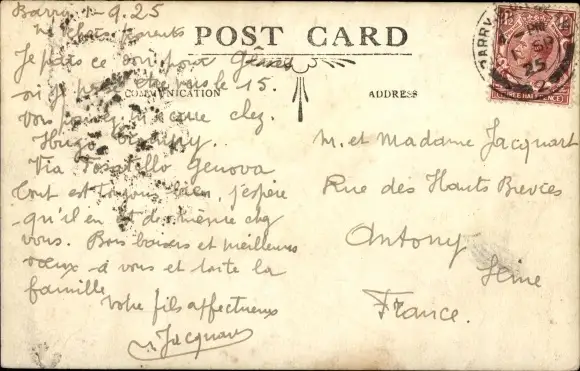 Barry 9.25
POST CARD
COMMUNICATION
ADDRESS
chers parents
Je pars ce soir pour Gênes
où je le 15.
Vous chez
Hugo
Via Donatello Genova
Tout est toujours bien, j'espère
qu'il en est de même chez
vous. Bons baisers et meilleurs
vœux à vous et toute la
famille
Votre fils affectueux
Jacquart
M. et Madame Jacquart
Rue des Hauts Brevces
Antony
Seine
France.
BARRY
SP
25
THREE HALFPENCE